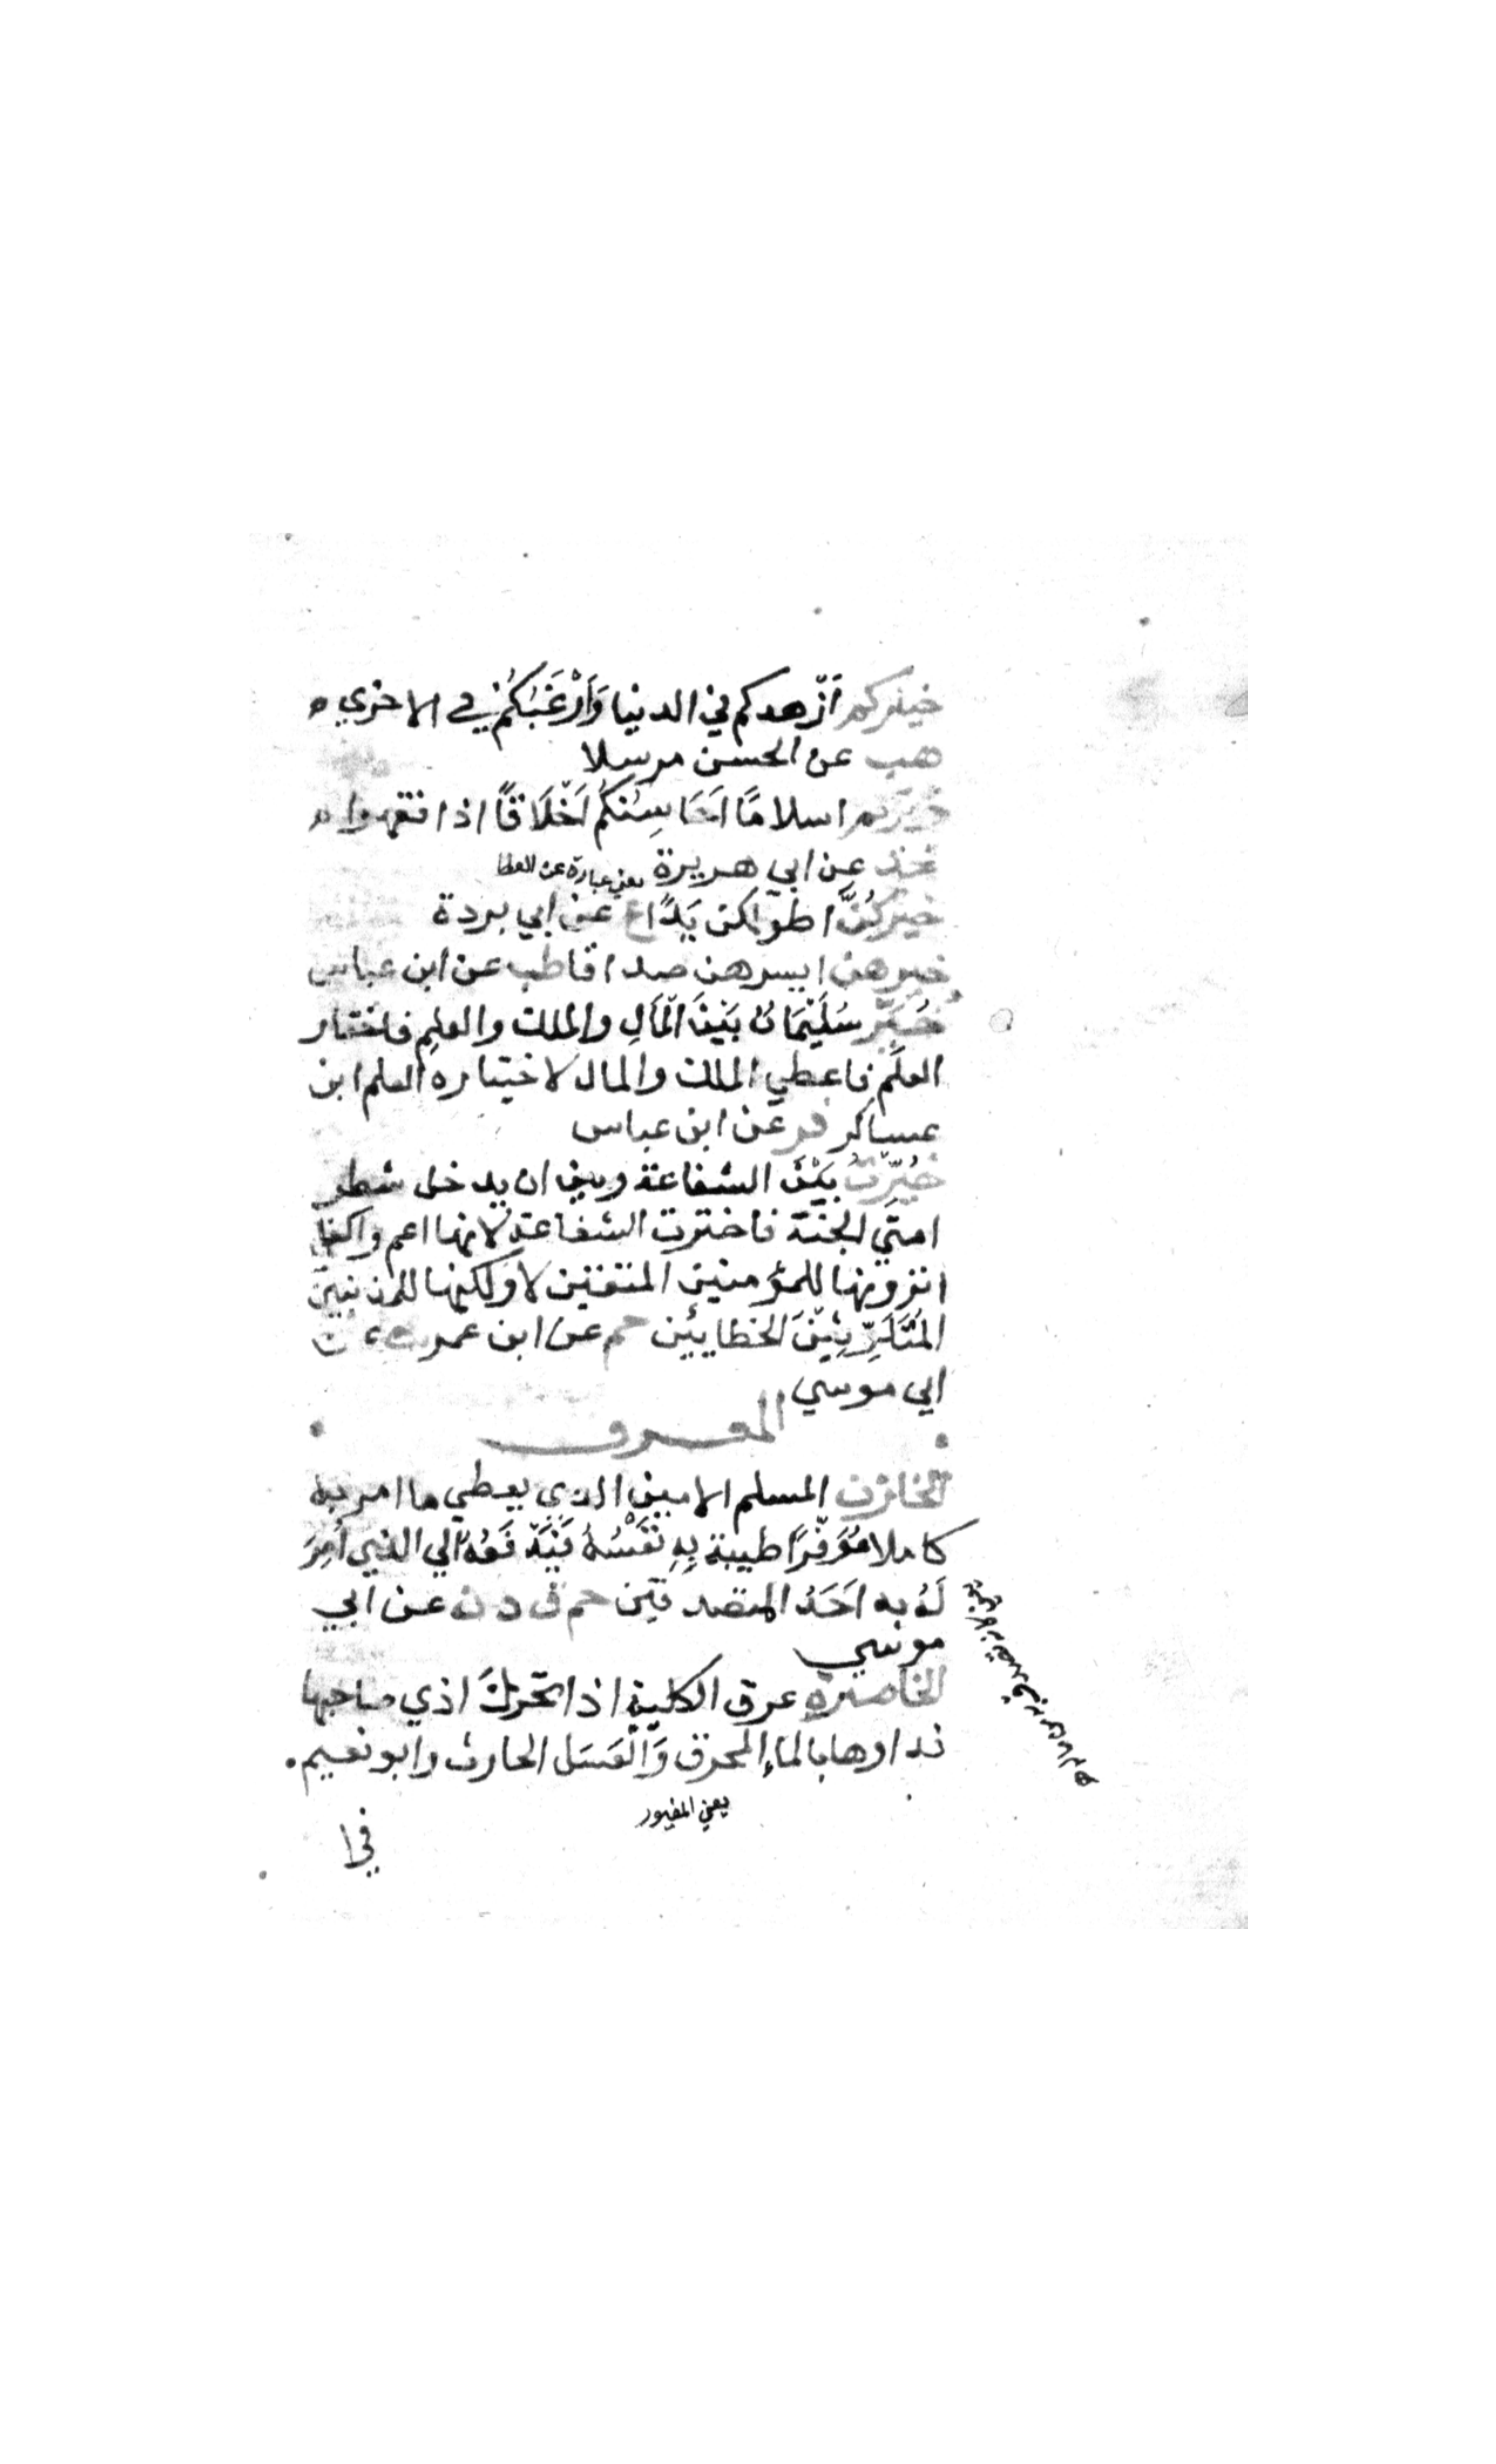 خيركم اَزْهدكم في الدنيا وَاَرْغَبُكُمْ في الاخري ه
هب عن الحسن مرسلا
خيركم اسلامًا اَحَاسِنُكُم اَخْلَاقًا اذا فقهوا ه
خد عن ابي هريرة يعني عبارة عن العطا
خيركُنَّ اطولكن يَدًا ع عن ابي بردة
خيرهن ايسرهن صداقا طب عن ابن عباس
خُيِّر سُلَيْمَان بَيْنَ الْمَالِ والملك والعلمِ فاختار
العلمَ فاعطي الملك والمال لاختياره العلم ابن
عساكر فر عن ابن عباس
خُيِّرْتُ بَيْنَ الشفاعة وبين ان يدخل شطر
امتَي الجنة فاخترت الشفاعة لانها اعم واكفا
اترونها للمؤمنين المتقين لا ولكنها للمذنبين
المُتَلَوِّثِيْنَ الخطايئين حم عن ابن عمر
ابي موسي
المعرف
الخازن المسلم الامين الذي يعطي ما امر به
كاملا مُوَفَّرًا طيبة بِهِ نَفْسُهُ فَيَدْفَعُهُ الي الذي اُمِرَ
لَهُ به اَحَدُ المتصدقين حم ق د ن عن ابي
موسي
الخاصرة عرق الكلية اذا تحرك اذي صاحبها
فداوها بالماءِ المحرق وَالْعَسَل الحارث وابو نعيم.
يعني المفيور
في ا